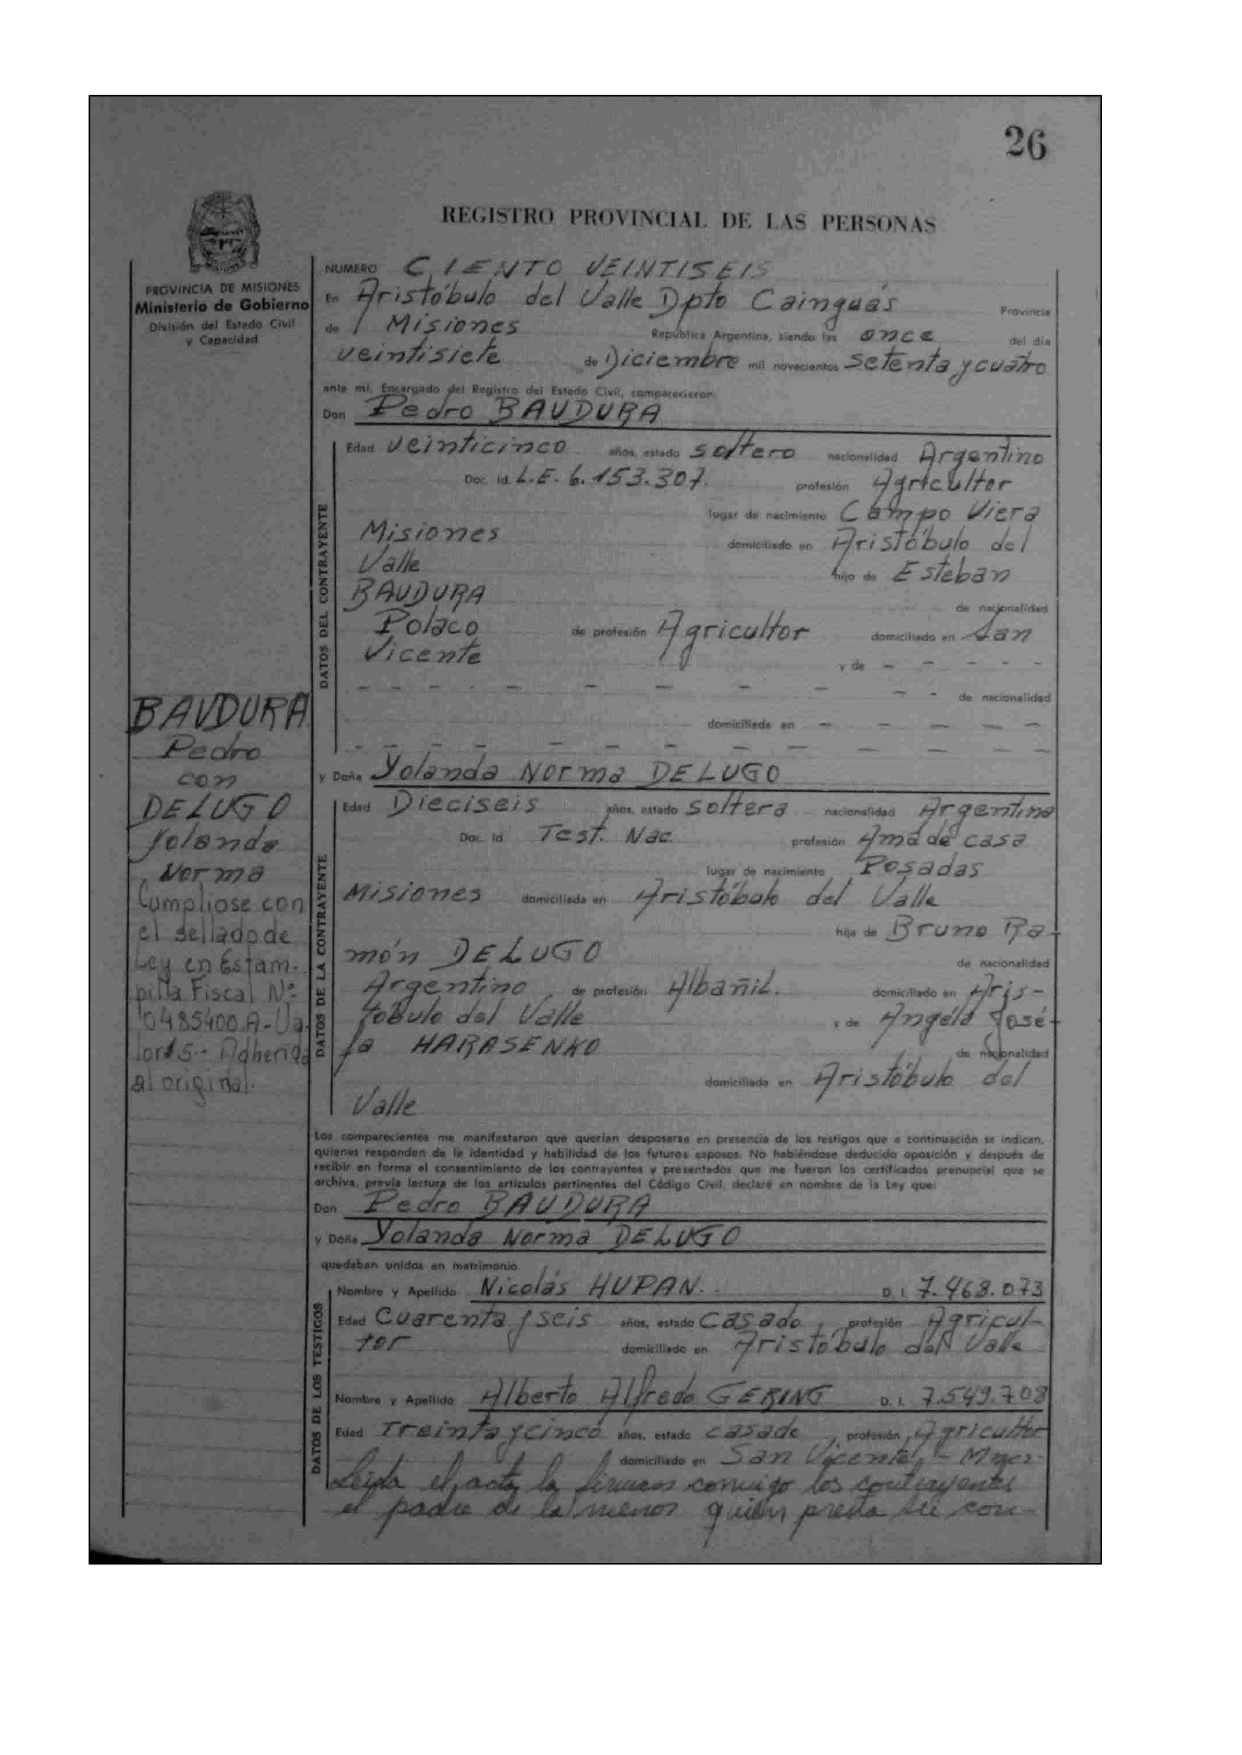 26
REGISTRO PROVINCIAL DE LAS PERSONAS
PROVINCIA DE MISIONES
Ministerio de Gobierno
División del Estado Civil
y Capacidad
BAUDURA
Pedro
con
DELUGO
Yolanda
Norma
Cumpliose con
el sellado de
Ley en Estam-
pilla Fiscal Nº
0485400.A-Va
lor $ 5.- Adherida
al original.
NUMERO CIENTO VEINTISEIS
En Aristóbulo del Valle Dpto Cainguás Provincia
de Misiones República Argentina, siendo las once del día
veintisiete de Diciembre mil novecientos setenta y cuatro
ante mí, Encargado del Registro del Estado Civil, comparecieron:
Don Pedro BAUDURA
DATOS DEL CONTRAYENTE
Edad veinticinco años, estado soltero nacionalidad Argentino
Doc. Id. L.E. 6.153.307. profesión Agricultor
lugar de nacimiento Campo Viera
Misiones domiciliado en Aristóbulo del
Valle hijo de Esteban
BAUDURA de nacionalidad
Polaco de profesión Agricultor domiciliado en San
Vicente y de - - - - -
- - - - - - - - - - de nacionalidad
domiciliada en - - - - -
- - - - - - - - - - - -
y Doña Yolanda Norma DELUGO
DATOS DE LA CONTRAYENTE
Edad Dieciseis años, estado soltera nacionalidad Argentina
Doc. Id Test. Nac. profesión Ama de casa
lugar de nacimiento Posadas
Misiones domiciliada en Aristóbulo del Valle
hija de Bruno Ra-
món DELUGO de nacionalidad
Argentino de profesión Albañil. domiciliado en Aris-
tobulo del Valle y de Angela José-
fa HARASENKO de nacionalidad
domiciliada en Aristóbulo del
Valle
Los comparecientes me manifestaron que querían desposarse en presencia de los testigos que a continuación se indican,
quienes responden de la identidad y habilidad de los futuros esposos. No habiéndose deducido oposición y después de
recibir en forma el consentimiento de los contrayentes y presentados que me fueron los certificados prenupcial que se
archiva, previa lectura de los artículos pertinentes del Código Civil, declaré en nombre de la Ley que:
Don Pedro BAUDURA
y Doña Yolanda Norma DELUGO
quedaban unidos en matrimonio.
DATOS DE LOS TESTIGOS
Nombre y Apellido Nicolás HUPAN. D. I. 7.468.073
Edad Cuarenta y seis años, estado casado, profesión Agricul-
tor domiciliado en Aristobulo del Valle
Nombre y Apellido Alberto Alfredo GERING D. I. 7.549.708
Edad Treinta y cinco años, estado casado, profesión Agricultor
domiciliado en San Vicente - Mnes.
Leída el acta la firman conmigo los contrayentes
el padre de la menor quién presta su con-